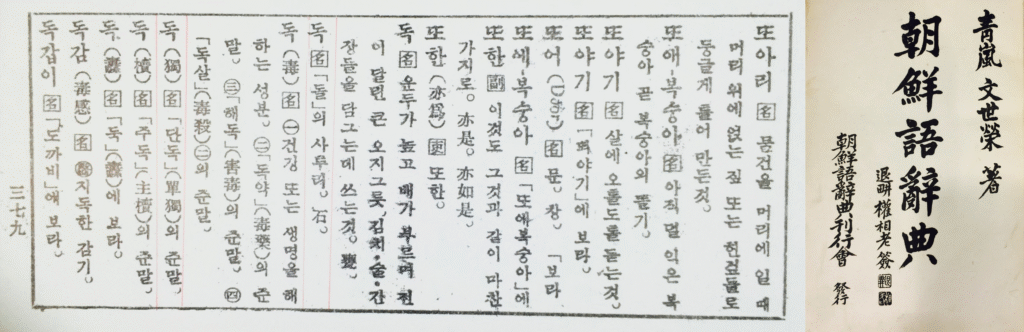 또아리 名 물건을 머리에 일 때
머리 위에 얹는 짚 또는 헌겊들로
둥글게 틀어 만든것。
또애-복숭아 名 아직 덜 익은 복
숭아 곧 복숭아의 똘기。
또야기 名 살에 오돌도돌돋는것。
또야기 名 「뙤야기」에 보라。
또어(Door) 名 문. 창. 「보라
또에-복숭아 名 「또애복숭아」에
또한 副 이것도 그것과 같이 마찬
가지로。亦是。亦如是。
또한(亦爲) 吏 또한.
독 名 운두가 높고 배가 부르며 전
이 달린 큰 오지그릇。김치·술·간
장들을 담그는데 쓰는것。甕
독 名 「돌」의 사투리。石。
독(毒) 名 ㊀건강 또는 생명을 해
하는 성분。㊁「독약」(毒藥)의 준
말。㊂「해독」(害毒)의 준말。㊃
「독살」(毒殺)㊁의 준말。
독(獨) 名 「단독」(單獨)의 준말。
독(櫝) 名 「주독」(主櫝)의 준말。
독(纛) 名 「둑」(纛)에 보라。
독감(毒感) 名 지독한 감기。
독갑이 名 「도까비」에 보라。
三七九
靑嵐 文世榮 著
朝鮮語辭典
退畊 權相老簽
朝鮮語辭典刊行會 發行